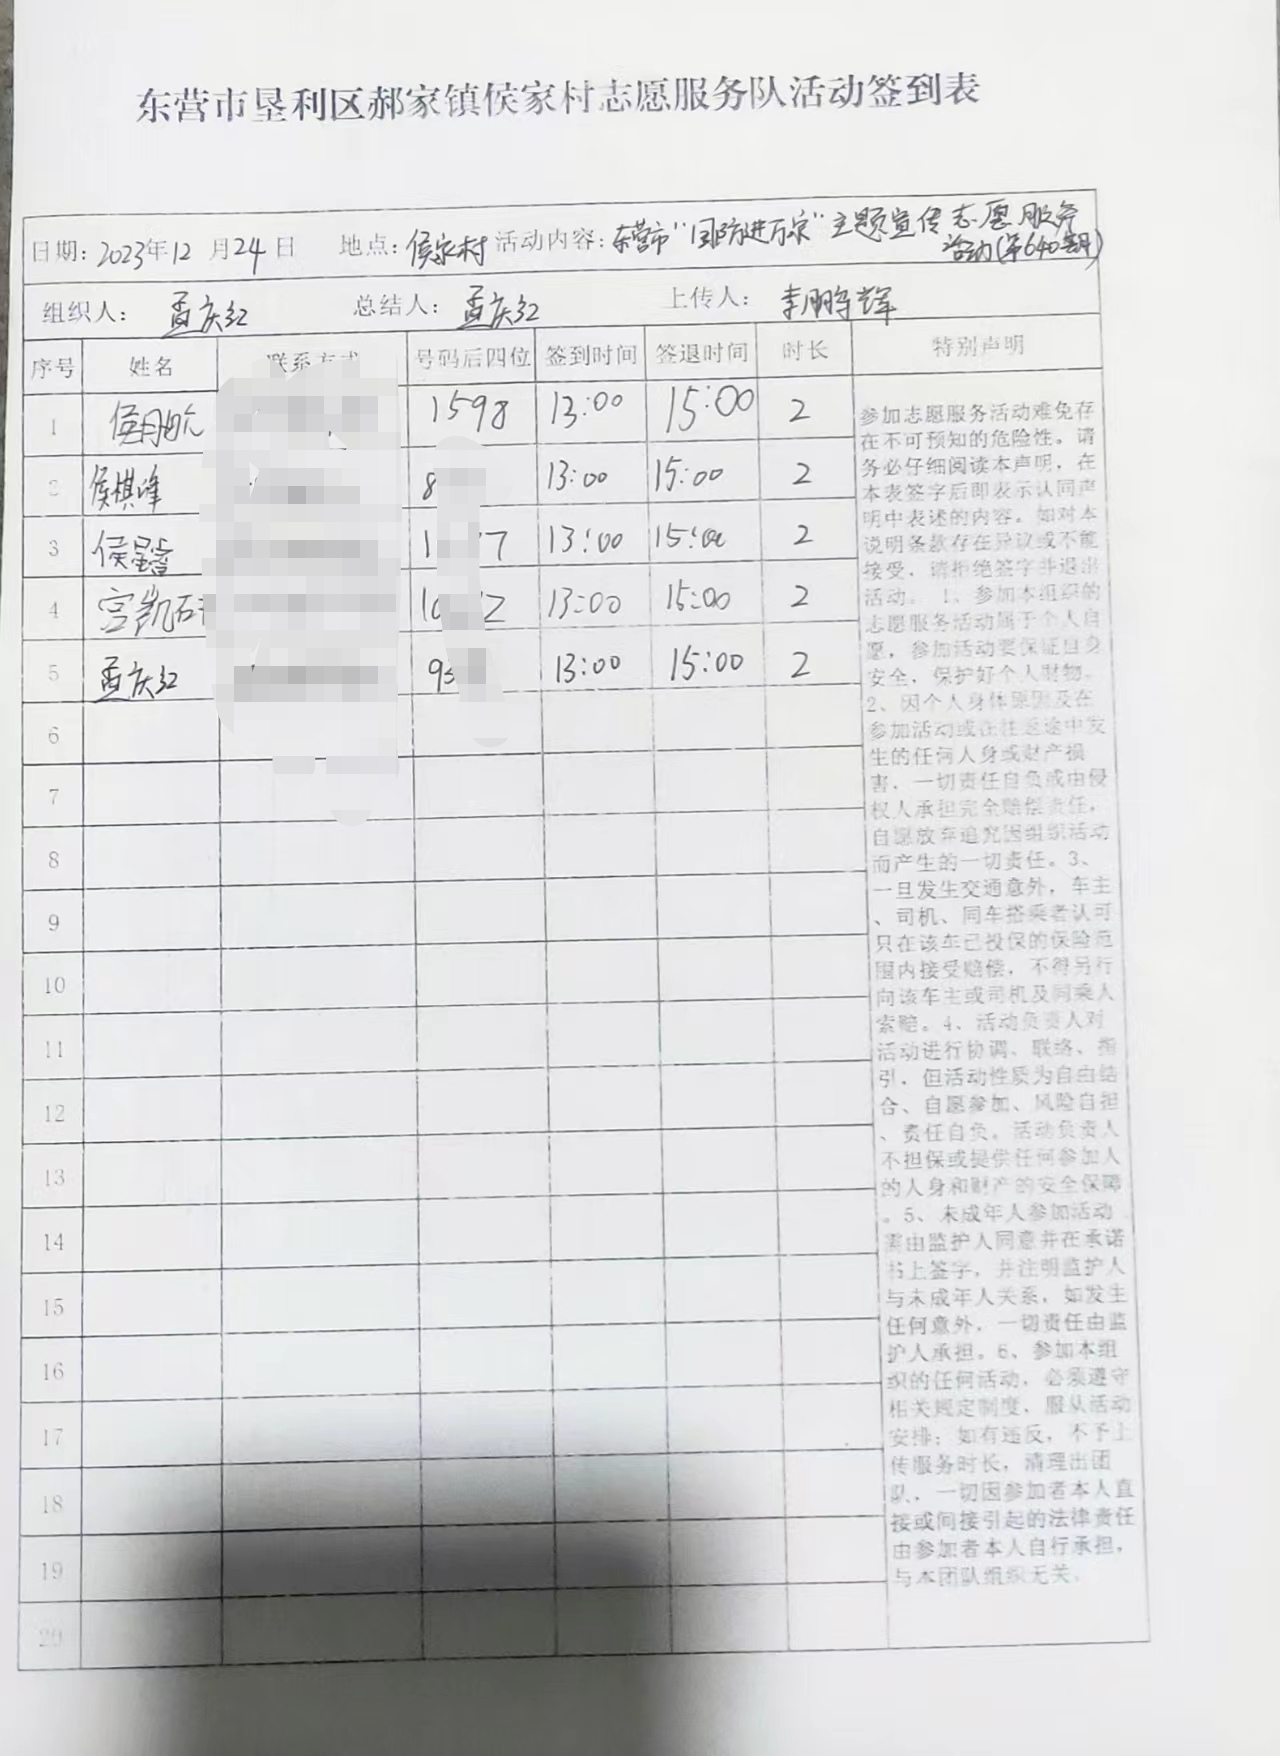 东营市垦利区郝家镇侯家村志愿服务队活动签到表
日期: 2023年12月24日 地点: 侯家村 活动内容: 东营市“国防进万家”主题宣传志愿服务
活动(第640期)
组织人: 孟庆红 总结人: 孟庆红 上传人: 李鹏辉
序号 姓名 联系方式 号码后四位 签到时间 签退时间 时长 特别声明
1 侯月皎 1598 13:00 15:00 2
2 侯棋峰 8 13:00 15:00 2
3 侯星睿 1 7 13:00 15:00 2
4 宫凯 10 2 13:00 15:00 2
5 孟庆红 93 13:00 15:00 2
6
7
8
9
10
11
12
13
14
15
16
17
18
19
20
参加志愿服务活动难免存
在不可预知的危险性。请
务必仔细阅读本声明，在
本表签字后即表示认同声
明中表述的内容。如对本
说明条款存在异议或不能
接受，请拒绝签字并退出
活动。 1、参加本组织的
志愿服务活动属于个人自
愿，参加活动要保证自身
安全，保护好个人财物。
2、因个人身体原因及在
参加活动或在往返途中发
生的任何人身或财产损
害，一切责任自负或由侵
权人承担完全赔偿责任，
自愿放弃追究因组织活动
而产生的一切责任。3、
一旦发生交通意外，车主
、司机、同车搭乘者认可
只在该车已投保的保险范
围内接受赔偿，不得另行
向该车主或司机及同乘人
索赔。4、活动负责人对
活动进行协调、联络、指
引，但活动性质为自由结
合、自愿参加、风险自担
、责任自负。活动负责人
不担保或提供任何参加人
的人身和财产的安全保障
。5、未成年人参加活动
需由监护人同意并在承诺
书上签字，并注明监护人
与未成年人关系，如发生
任何意外，一切责任由监
护人承担。6、参加本组
织的任何活动，必须遵守
相关规定制度，服从活动
安排；如有违反，不予上
传服务时长，清理出团
队，一切因参加者本人直
接或间接引起的法律责任
由参加者本人自行承担，
与本团队组织无关。